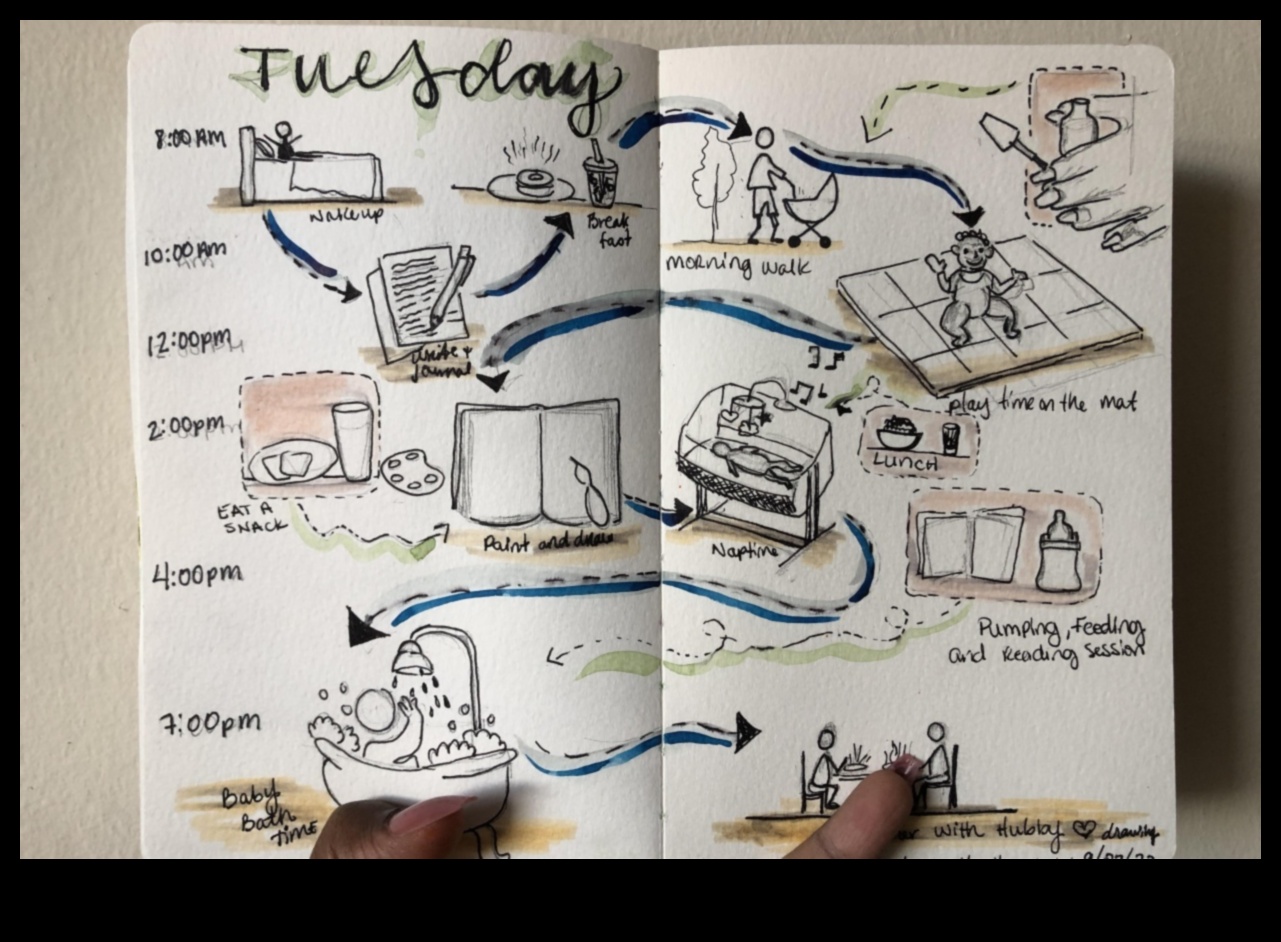 Tuesday
8:00 AM
Wake up
Break
fast
morning walk
10:00 AM
Write +
journal
12:00pm
play time on the mat
2:00pm
LUNCH
EAT A
SNACK
Paint and draw
Naptime
4:00pm
Pumping, Feeding
and Reading session
7:00pm
Baby
Bath
time
with Hubby ♡ drawing